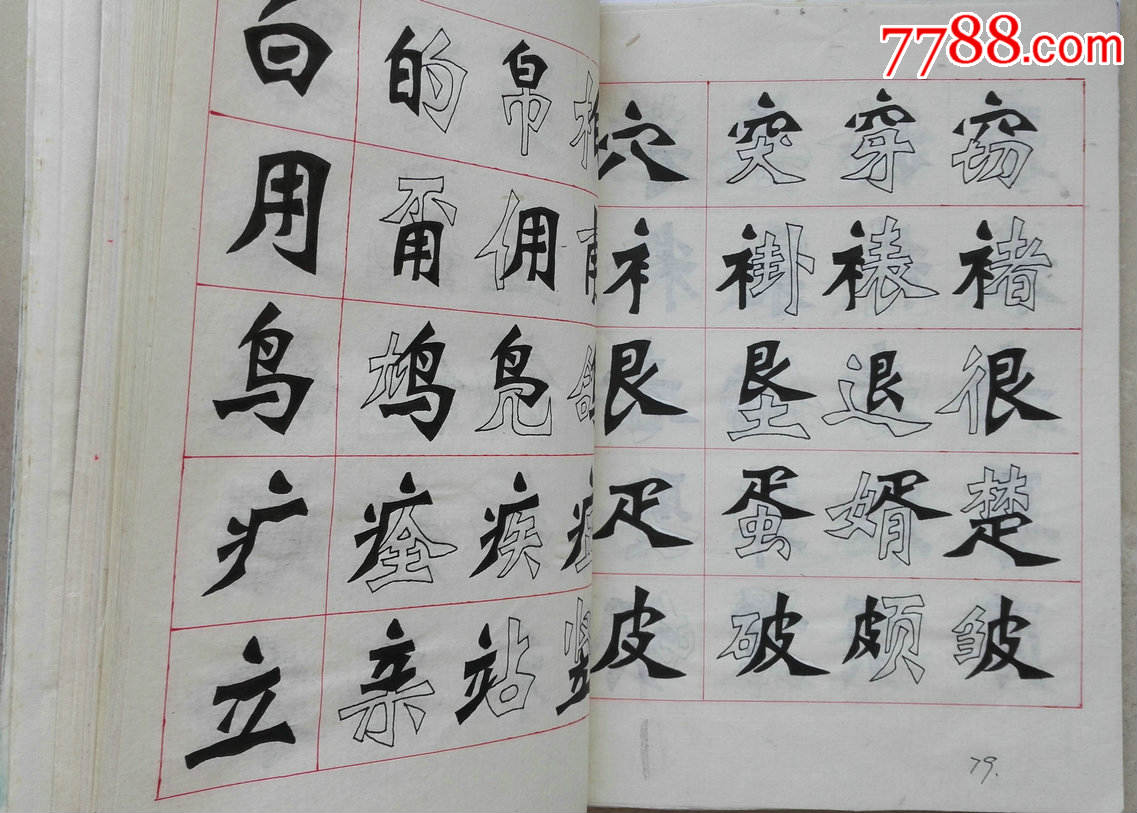 7788.com
白 的 帛
用 甭 佣
鸟 鸠 凫
疒 痊 疾
立 亲 站 竖
穴 突 穿 窃
衤 褂 裱 褚
艮 垦 退 很
疋 蛋 婿 楚
皮 破 颇 皱
79.